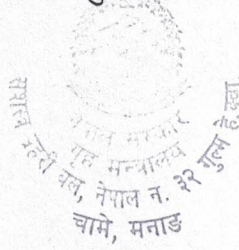 नेपाल सरकार
गृह मन्त्रालय
सशस्त्र प्रहरी बल, नेपाल नं. ३२ गुल्म हे.क्वा
चामे, मनाङ